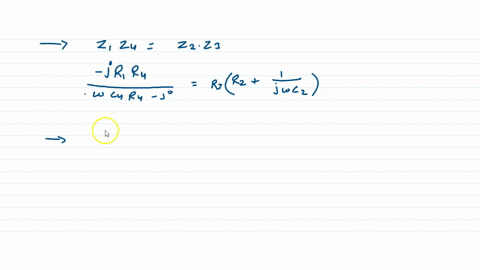 → Z₁ Z₄ = Z₂ . Z₃
-j R₁ R₄ / ω C₄ R₄ - j = R₃ ( R₂ + 1 / jωC₂ )
→